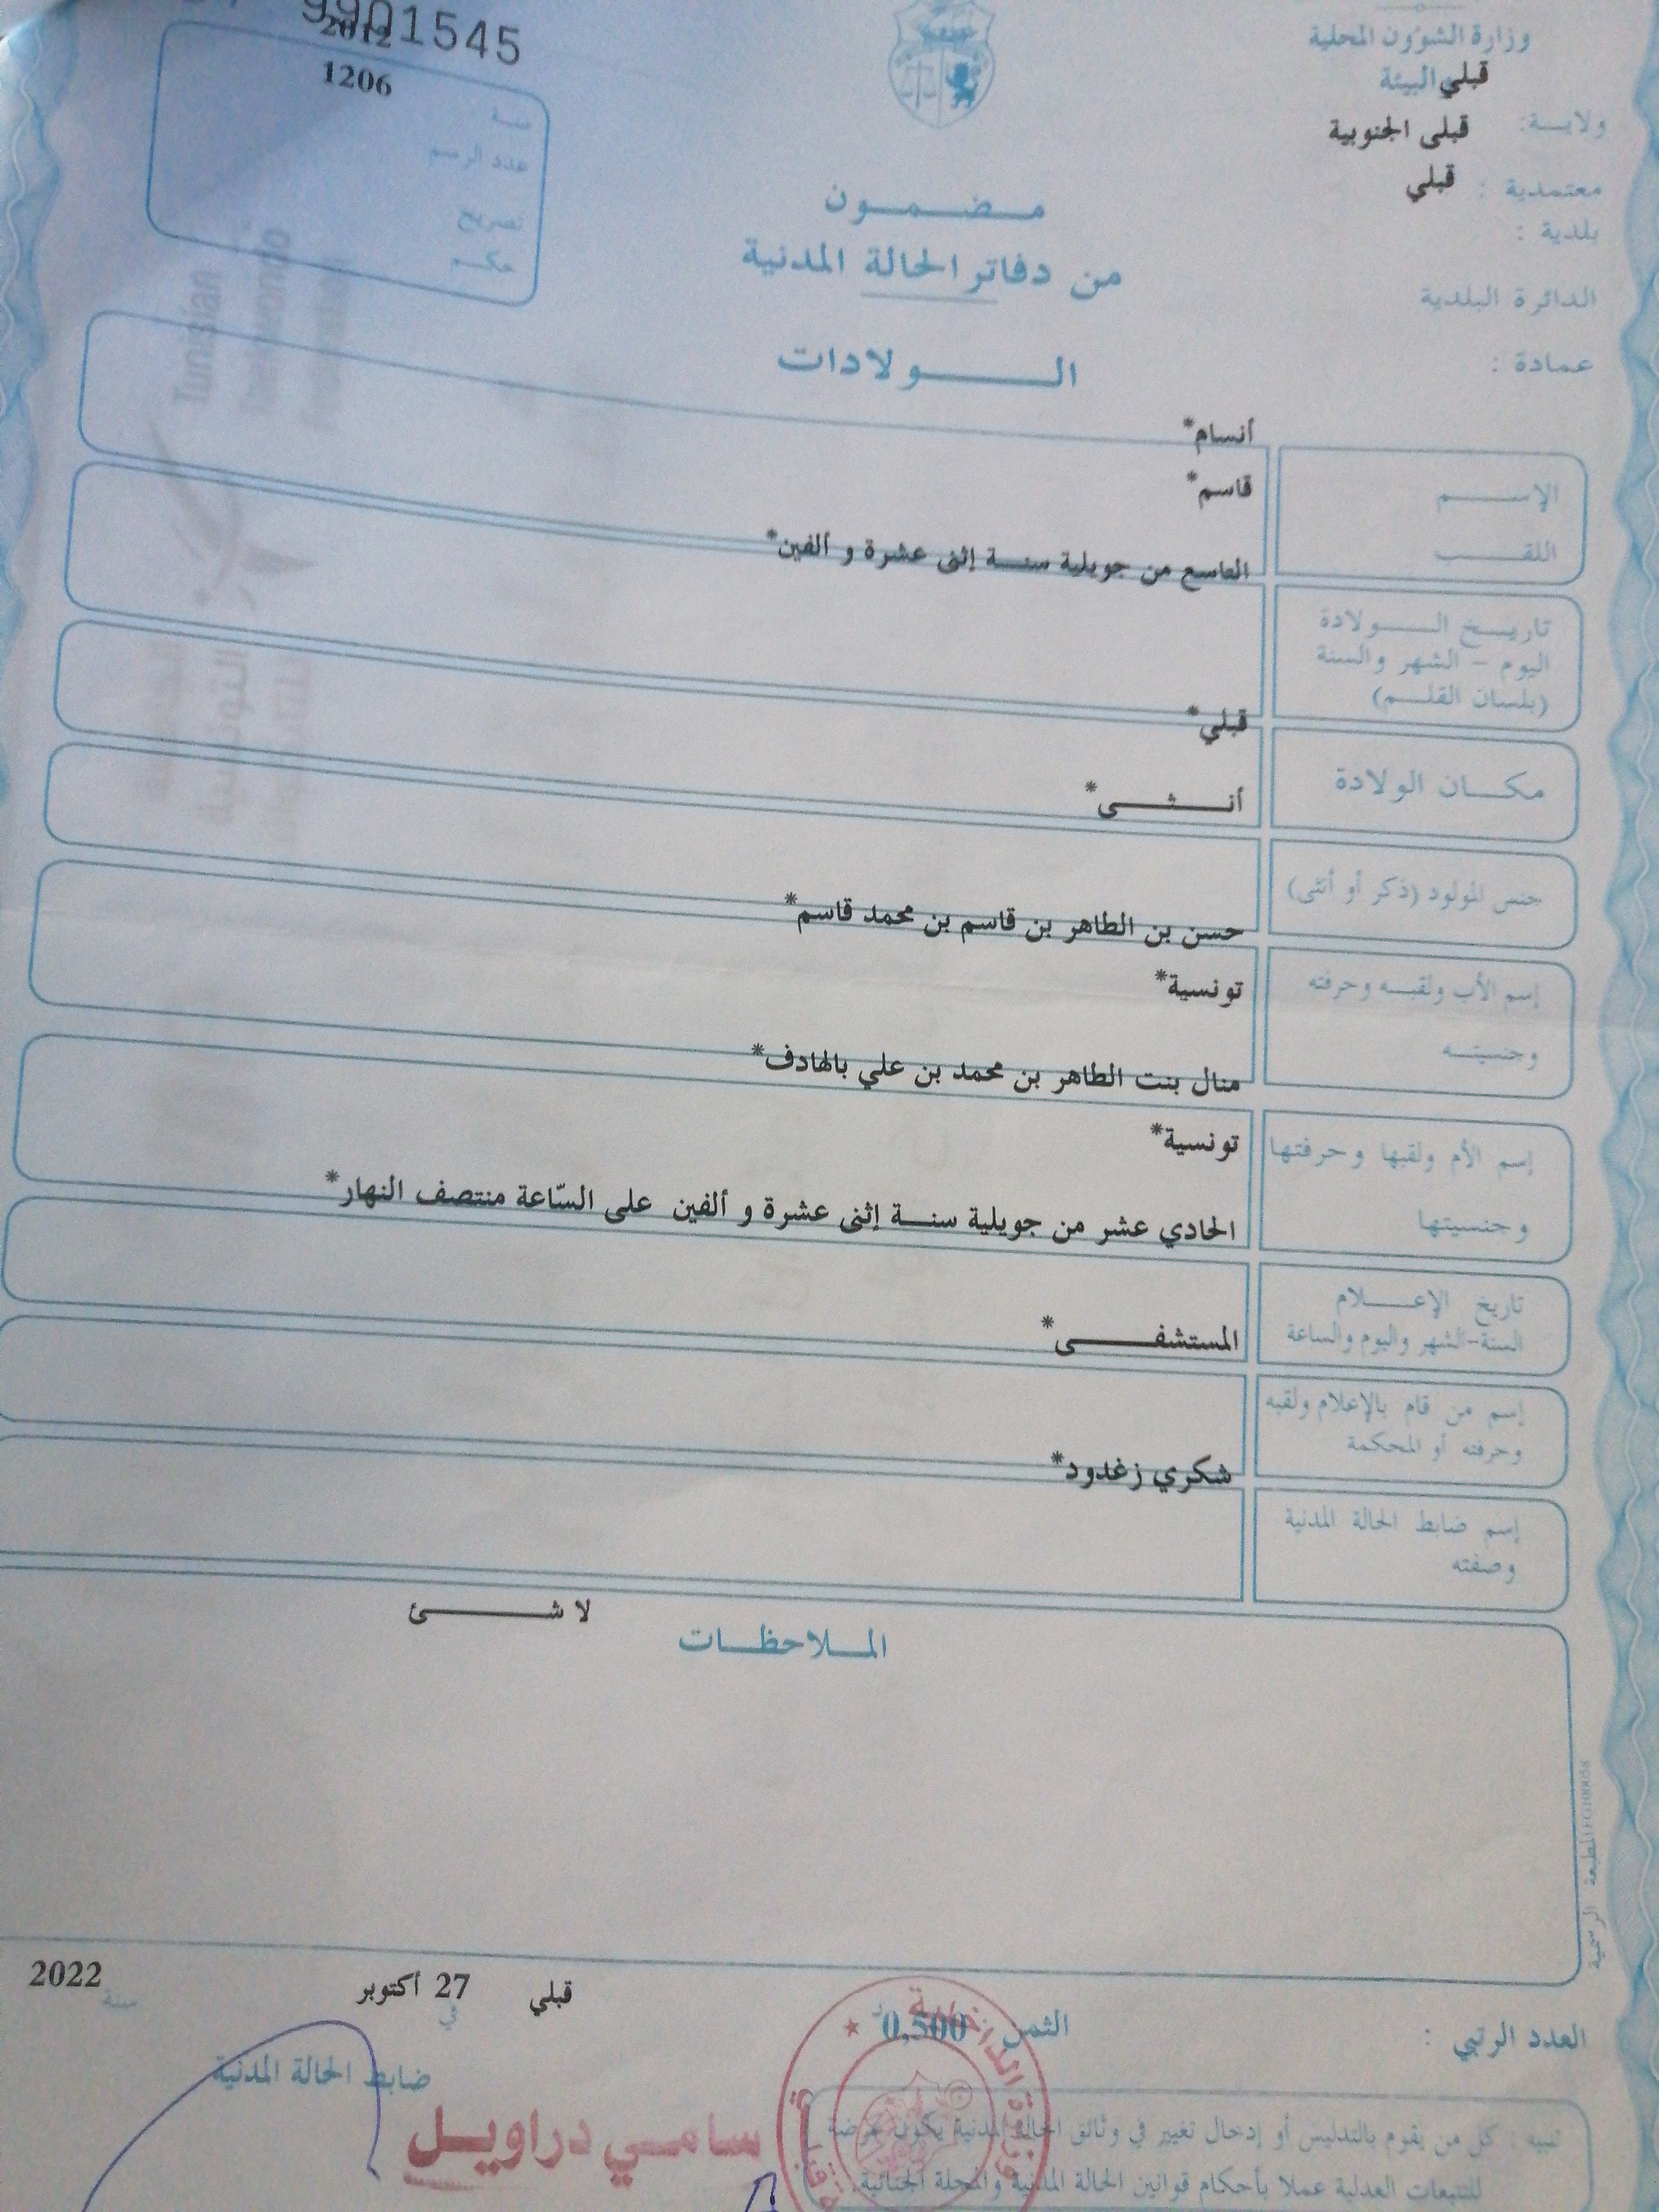 9901545
2012
1206
سنة
عدد الرسم
تصريح
حكم
وزارة الشؤون المحلية
والبيئة
قبلي
ولاية:
قبلى الجنوبية
معتمدية :
قبلي
بلدية :
الدائرة البلدية
عمادة :
مضمون
من دفاتر الحالة المدنية
الولادات
Tunisian
التونسية
أنسام*
الإسم
قاسم*
اللقب
التاسع من جويلية سنة إثنى عشرة و ألفين*
تاريخ الولادة
اليوم - الشهر والسنة
(بلسان القلم)
قبلي*
مكان الولادة
أنثى*
جنس المولود (ذكر أو أنثى)
حسن بن الطاهر بن قاسم بن محمد قاسم*
إسم الأب ولقبه وحرفته
تونسية*
وجنسيته
منال بنت الطاهر بن محمد بن علي بالهادف*
إسم الأم ولقبها وحرفتها
تونسية*
وجنسيتها
الحادي عشر من جويلية سنة إثنى عشرة و ألفين على السّاعة منتصف النهار*
تاريخ الإعلام
السنة-الشهر واليوم والساعة
المستشفى*
إسم من قام بالإعلام ولقبه
وحرفته أو المحكمة
شكري زغدود*
إسم ضابط الحالة المدنية
وصفته
لا شئ
الملاحظات
المطبعة الرسمية
قبلي في 27 أكتوبر سنة 2022
العدد الرتبي :
الثمن 0,500 د
ضابط الحالة المدنية
سامي دراويل
وزارة الداخلية
تنبيه : كل من يقوم بالتدليس أو إدخال تغيير في وثائق الحالة المدنية يكون عرضة
للتتبعات العدلية عملا بأحكام قوانين الحالة المدنية والمجلة الجنائية.